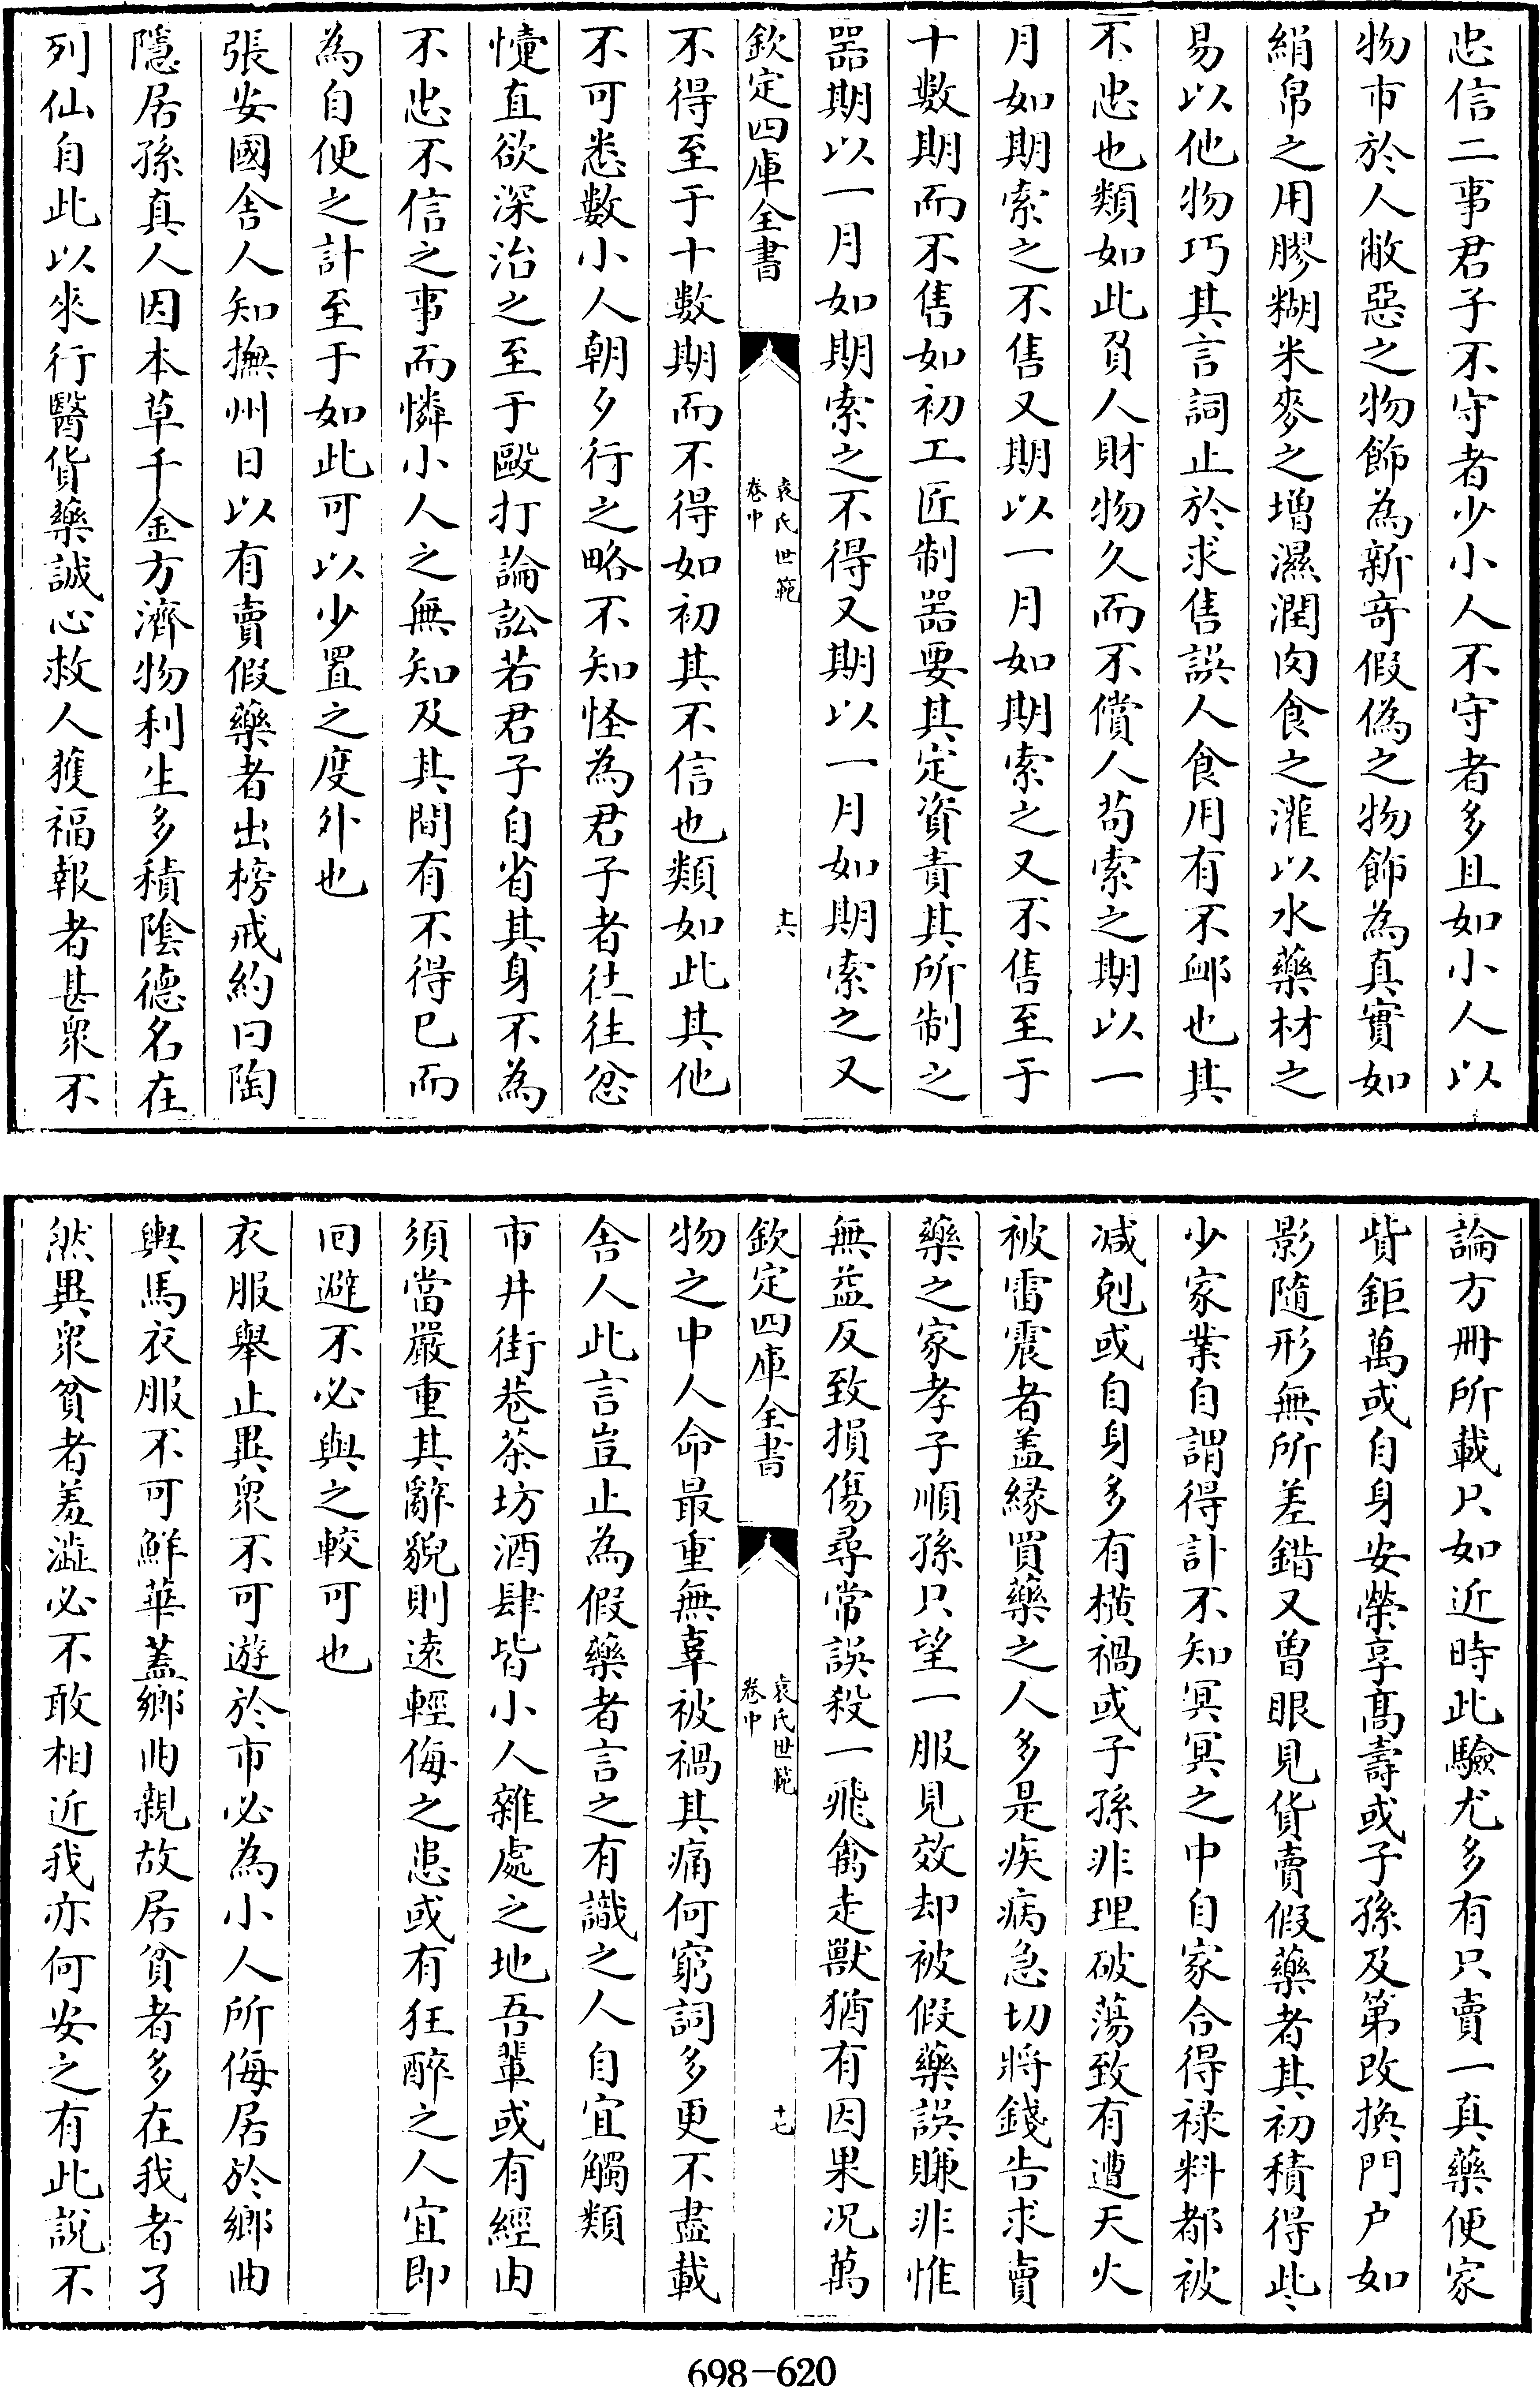 忠信二事君子不守者少小人不守者多且如小人以
物市於人敝惡之物飾為新奇假偽之物飾為真實如
絹帛之用膠糊米麥之增濕潤肉食之灌以水藥材之
易以他物巧其言詞止於求售誤人食用有不䘏也其
不忠也類如此負人財物久而不償人苟索之期以一
月如期索之不售又期以一月如期索之又不售至于
十數期而不售如初工匠制噐要其定資責其所制之
噐期以一月如期索之不得又期以一月如期索之又
欽定四庫全書
袁氏世範
卷中
十六
不得至于十數期而不得如初其不信也類如此其他
不可悉數小人朝夕行之略不知怪為君子者往往忿
懥直欲深治之至于毆打論訟若君子自省其身不為
不忠不信之事而憐小人之無知及其間有不得已而
為自便之計至于如此可以少置之度外也
張安國舍人知撫州日以有賣假藥者出榜戒約曰陶
隱居孫真人因本草千金方濟物利生多積隂德名在
列仙自此以來行醫貨藥誠心救人獲福報者甚衆不
論方冊所載只如近時此驗尤多有只賣一真藥便家
貲鉅萬或自身安榮享髙壽或子孫及第改換門户如
影隨形無所差錯又曽眼見貨賣假藥者其初積得些
少家業自謂得計不知冥冥之中自家合得禄料都被
减剋或自身多有橫禍或子孫非理破蕩致有遭天火
被雷震者盖緣買藥之人多是疾病急切將錢告求賣
藥之家孝子順孫只望一服見效却被假藥誤賺非惟
無益反致損傷尋常誤殺一飛禽走獸猶有因果况萬
欽定四庫全書
袁氏世範
卷中
十七
物之中人命最重無辜被禍其痛何窮詞多更不盡載
舍人此言豈止為假藥者言之有識之人自宜觸類
市井街巷茶坊酒肆皆小人雜處之地吾輩或有經由
須當嚴重其辭貌則遠輕侮之患或有狂醉之人宜即
回避不必與之較可也
衣服舉止異衆不可遊於市必為小人所侮居於鄉曲
輿馬衣服不可鮮華蓋鄉曲親故居貧者多在我者孑
然異衆貧者羞澁必不敢相近我亦何安之有此說不
698-620